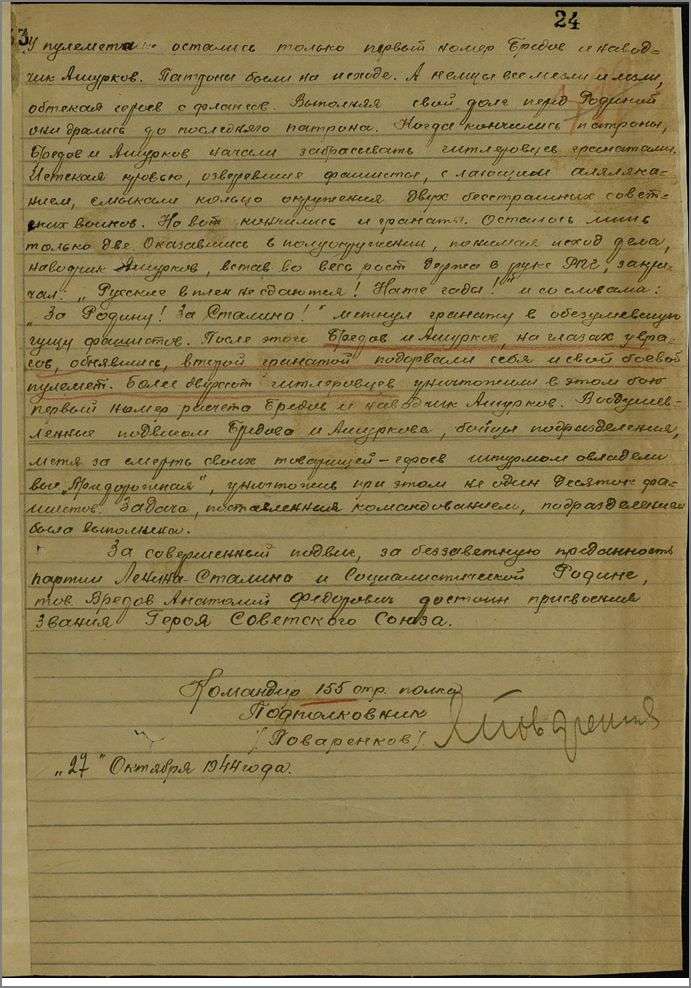 24
53
У пулемета остались только первый номер Бредов и навод-
чик Ашурков. Патроны были на исходе. А немцы все лезли и лезли,
обтекая героев с флангов. Выполняя свой долг перед Родиной
они дрались до последнего патрона. Когда кончились патроны,
Бредов и Ашурков начали забрасывать гитлеровцев гранатами.
Истекая кровью, озверевшие фашисты, с лающим
нием, смыкали кольцо окружения двух бесстрашных совет-
ских воинов. Но вот кончились и гранаты. Осталось лишь
только две. Оказавшись в полуокружении, понимая исход дела,
наводчик Ашурков, встав во весь рост держа в руке гранату, закри-
чал: „Русские в плен не сдаются! Нате гады!" и со словами:
„За Родину! За Сталина!" метнул гранату в обезумевшую
гущу фашистов. После этого Бредов и Ашурков, на глазах у вра-
гов, обнявшись, второй гранатой подорвали себя и свой боевой
пулемет. Более двухсот гитлеровцев уничтожили в этом бою
первый номер расчета Бредов и наводчик Ашурков. Воодушев-
ленные подвигом Бредова и Ашуркова, бойцы подразделения,
мстя за смерть своих товарищей – героев штурмом овладели
выс. „Придорожная", уничтожив при этом не один десяток фа-
шистов. Задача, поставленная командованием, подразделением
была выполнена.
За совершенный подвиг, за беззаветную преданность
партии Ленина-Сталина и Социалистической Родине,
тов Бредов Анатолий Федорович достоин присвоения
звания Героя Советского Союза.
Командир 155 стр. полка
Подполковник
/Поваренков/
„27" Октября 1944 года.